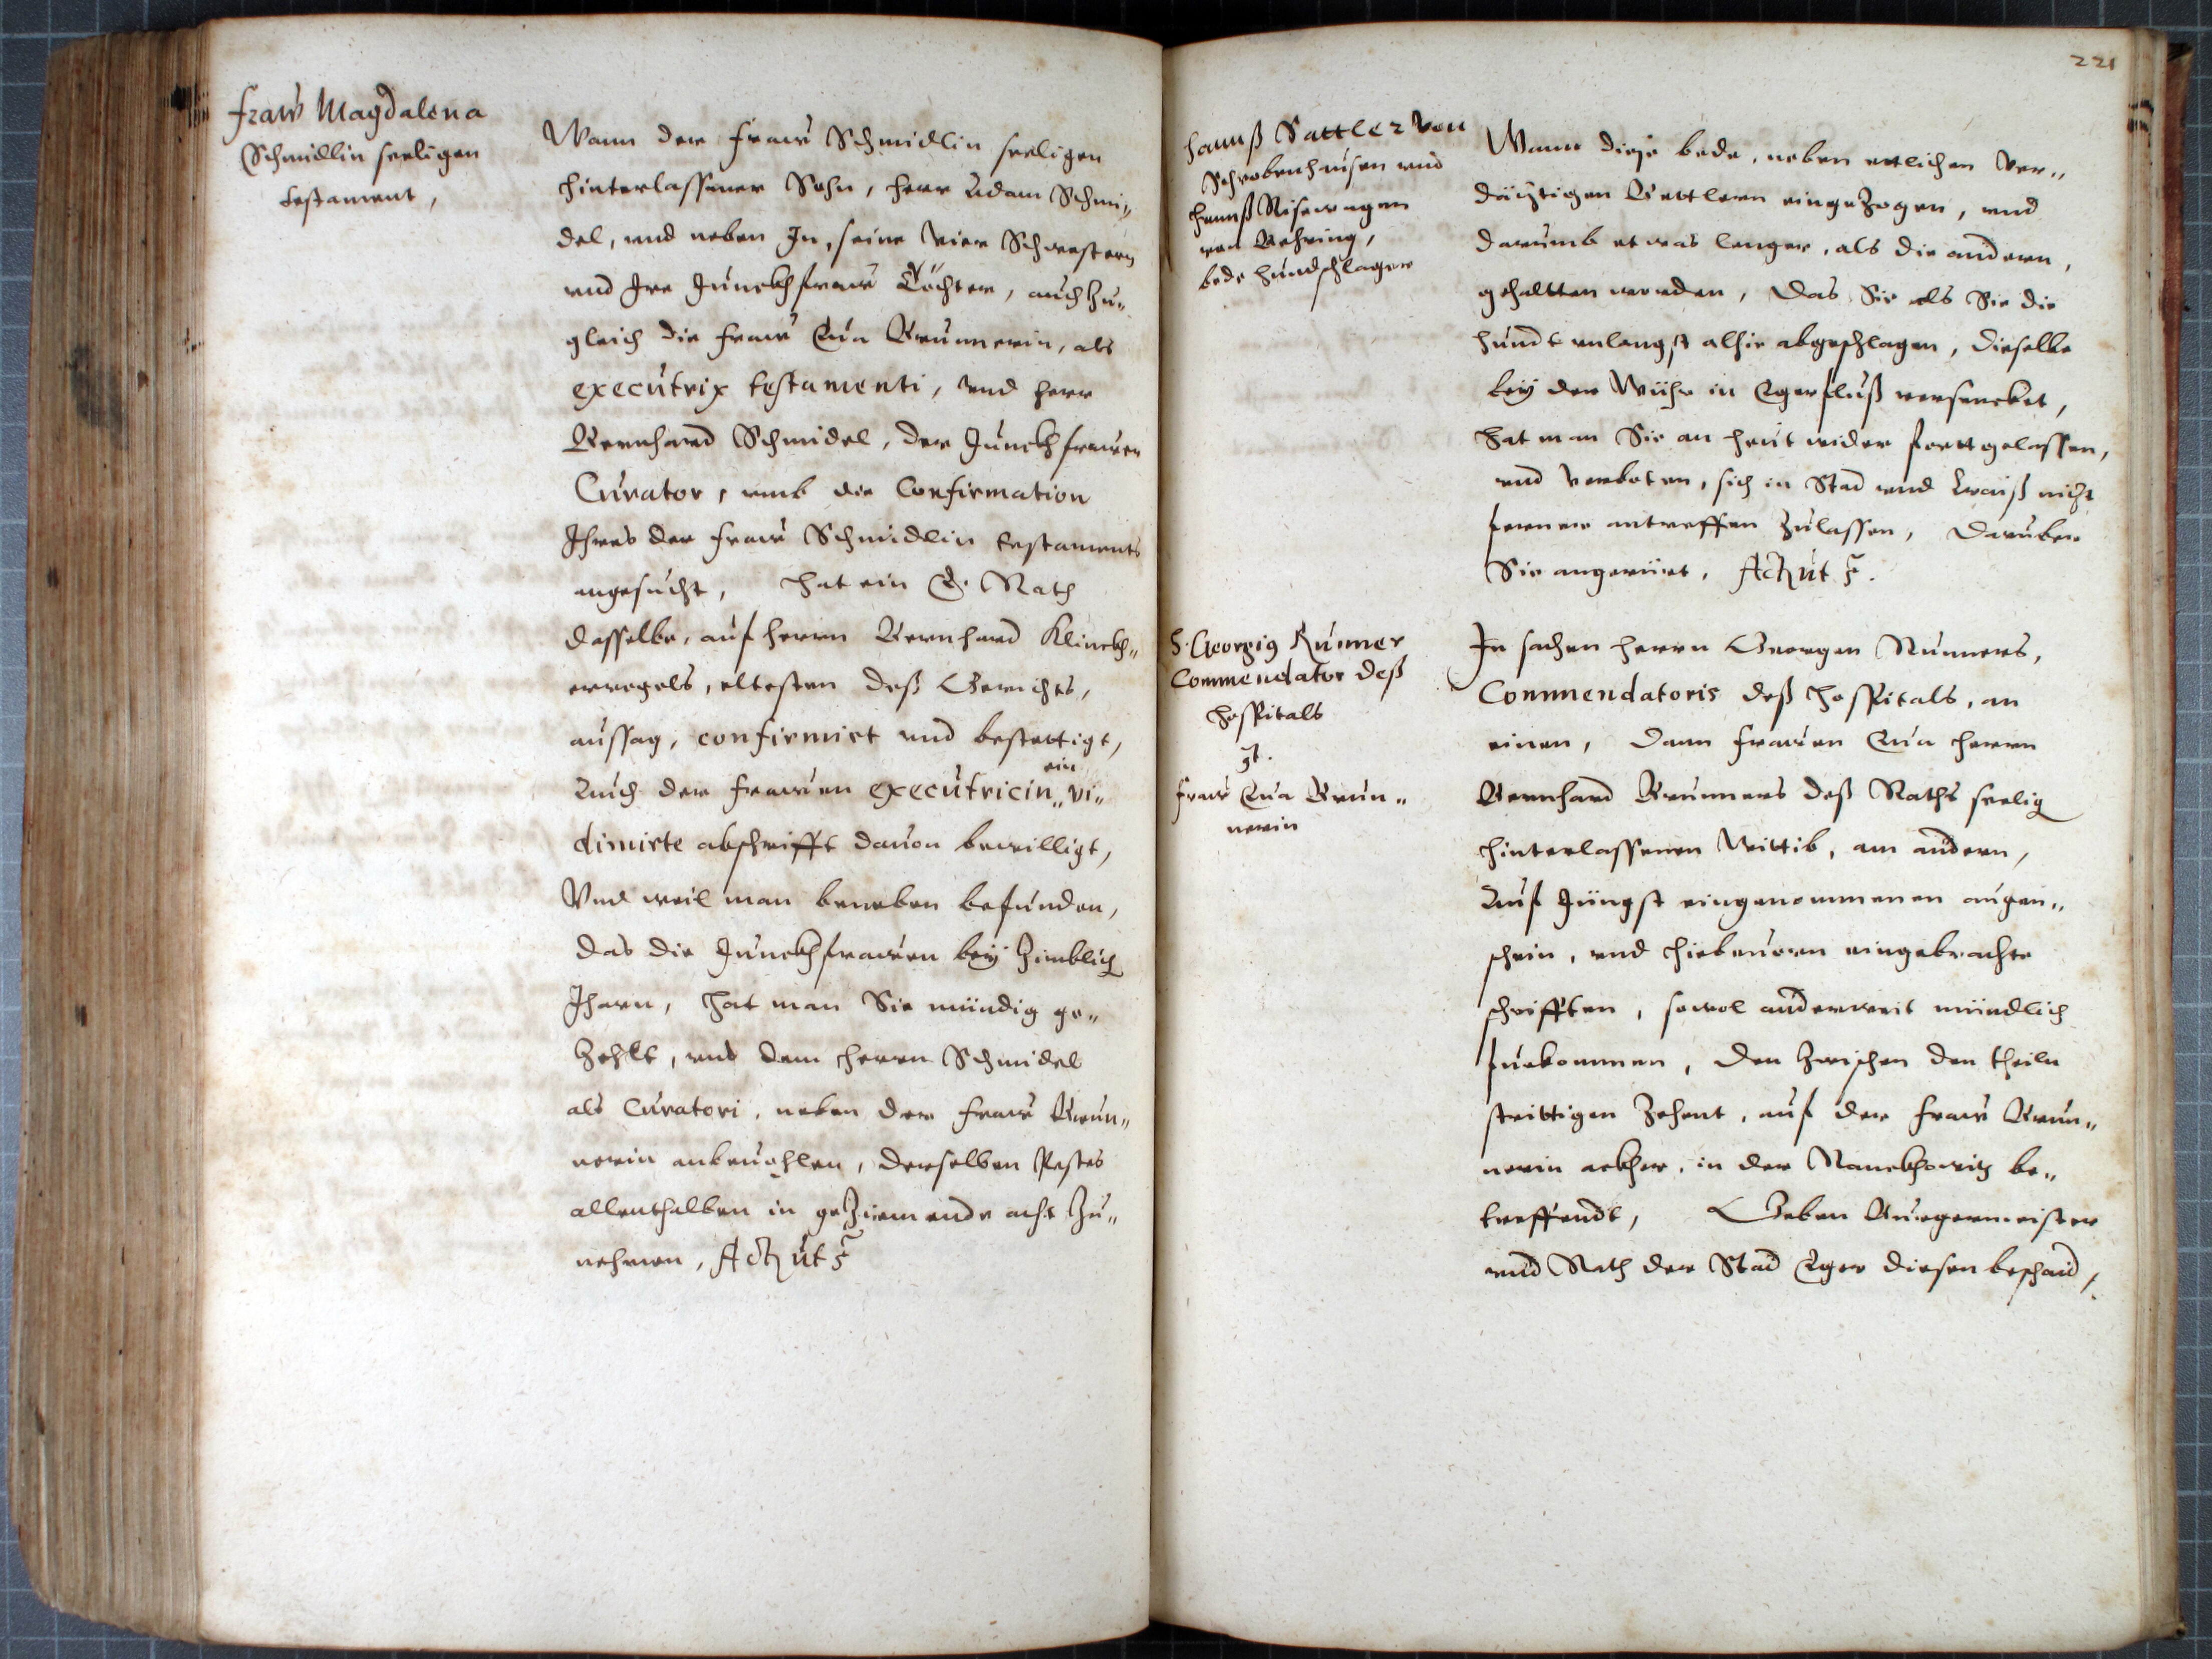 Fraw Magdalena
Schmidlin seeligen
testament,
Wann der Fraw Schmidlin seeligen
hinterlassener Sohn, Herr Adam Schmi„
del, und neben Im, seine vier Schwestern
und Ire Junckhfraw Töchter, auch zu„
gleich die Fraw Eva Brunnerin, als
executrix testamenti, und Herr
Bernhard Schmidel, der Junckhfrawen
Curator, umb die Confirmation
Ihres der Fraw Schmidlin testaments
angesucht, hat ein E. Rath
dasselbe, auf Herrn Bernhard Klinckh„
ervogels, eltesten deß Gerichts,
aussag, confirmirt und bestettigt,
Auch der Frawen executricin„ ein vi„
dimirte abschrifft davon bewilligt,
Vnd weil man beneben befunden,
das die Junckhfrawen bey zimblich
Jharn, hat man Sie mündig ge„
zehlt, und dem Herrn Schmidel
als Curatori, neben der Fraw Brun„
nerin anbevohlen, derselben Bestes
allenthalben in geziemende acht zu„
nehmen, Act ut s
221
Hannß Sattler von
Schrobenhausen und
Hannß
von Behring,
bede Hundschlager
Wann diese bede, neben etlichen ver„
dächtigen Bettlern eingezogen, und
darumb etwas lenger, als die andern,
gehaltten worden, Das Sie als Sie die
Hundt unlengst alhie abgeschlagen, dieselbe
bey der Wühr in Egerfluß versencket,
Hat man Sie an heut wider fortt gelassen,
und verboten, sich in Stad und Craiß nicht
ferner antreffen zulassen, Darüber
Sie angerürt, Act ut s.
H. Georgius Runner
Commendator deß
Hospitals
gt.
Fraw Eva Brun„
nerin
In sachen Herrn Georgen Runners,
Commendatoris deß Hospitals, an
einen, Dann Frawen Eva Herrn
Bernhard Brunners deß Raths seelig
hinterlassenen Wittib, am andern,
Auf Jüngst eingenommenen augen„
schein, und hiebevorn eingebrachte
schrifften, sowol anderweit mündlich
fürkommen, den zwischen den theiln
strittigen Zehent, auf der Fraw Brun„
nerin ackher, in der be„
treffendt, Geben Burgermeister
und Rath der Stad Eger diesen beschaid,